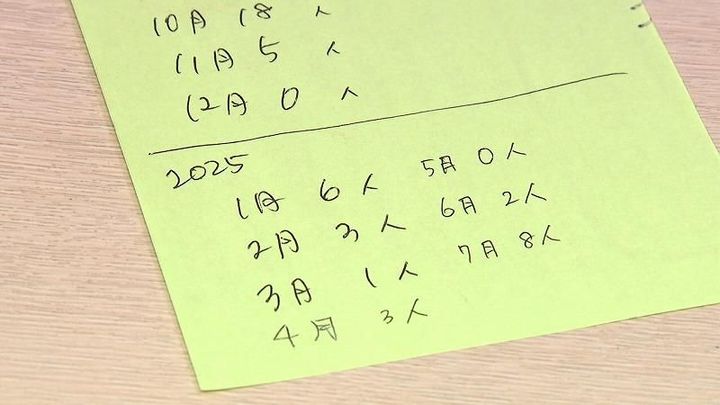 10月 18 人
11月 5 人
12月 0 人
2025
1月 6 人
2月 3 人
3月 1 人
4月 3人
5月 0人
6月 2人
7月 8人